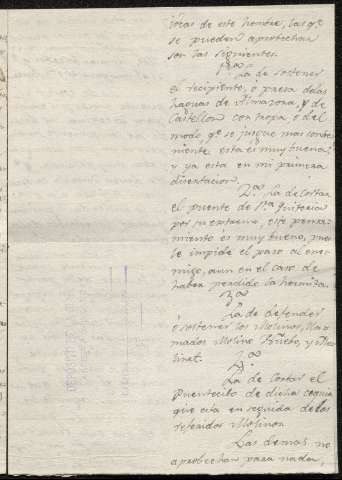 ideas de este hombre, las qe.
se pueden aprobechar
son las siguientes.
1ª.
La de sostener
el recipiente, o presa de las
haguas de Almazora, y de
Castellon con tropa, o del
modo qe. se jusgue mas conbe-
niente esta es muy buena,
y ya esta en mi primera
disertacion.
2ª. La de cortar
el puente de Sta. Quiteria
por su extremo, este pensa-
miento es muy bueno, pues
le impide el paso al ene-
migo, aun en el caso de
haber perdido la hermita.
3ª.
La de defender
o sostener los Molinos, lla-
mados Molino y Mo-
linet.
4ª.
La de Cortar el
Puentecito de dicha
que esta en seguida de los
referidos Molinos
Las demas no
aprobechan para nada,